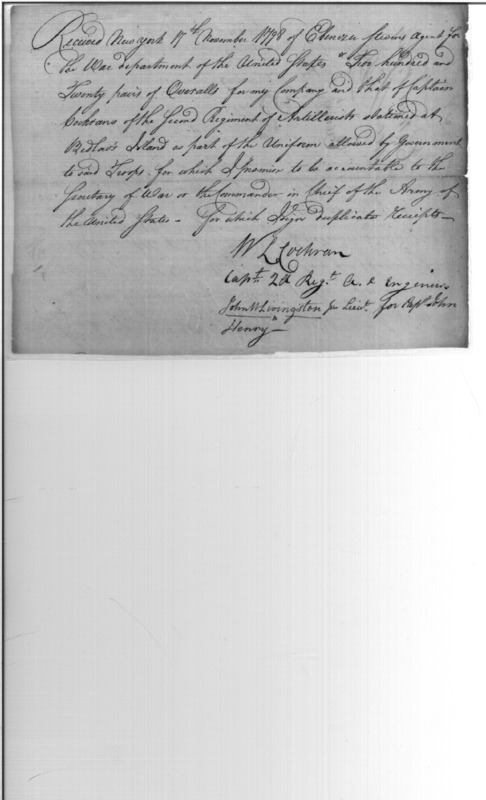 Received New York 17th November 1798 of Ebenezer Stevens Agent for
the War department of the United States Two hundred and
Twenty pairs of Overalls for my Company and that of Captain
Cochrans of the Second Regiment of Artillerists stationed at
Bedlow's Island as part of the Uniform allowed by Government
to said Troops. for which I promise to be accountable to the
Secretary of War or the Commander in Chief of the Army of
the United States - For which I sign duplicate Receipts -
W L Cochran
Capt. 2d Regt. A. & Engineers
John W Livingston Lieut. for Capt John
Henry -